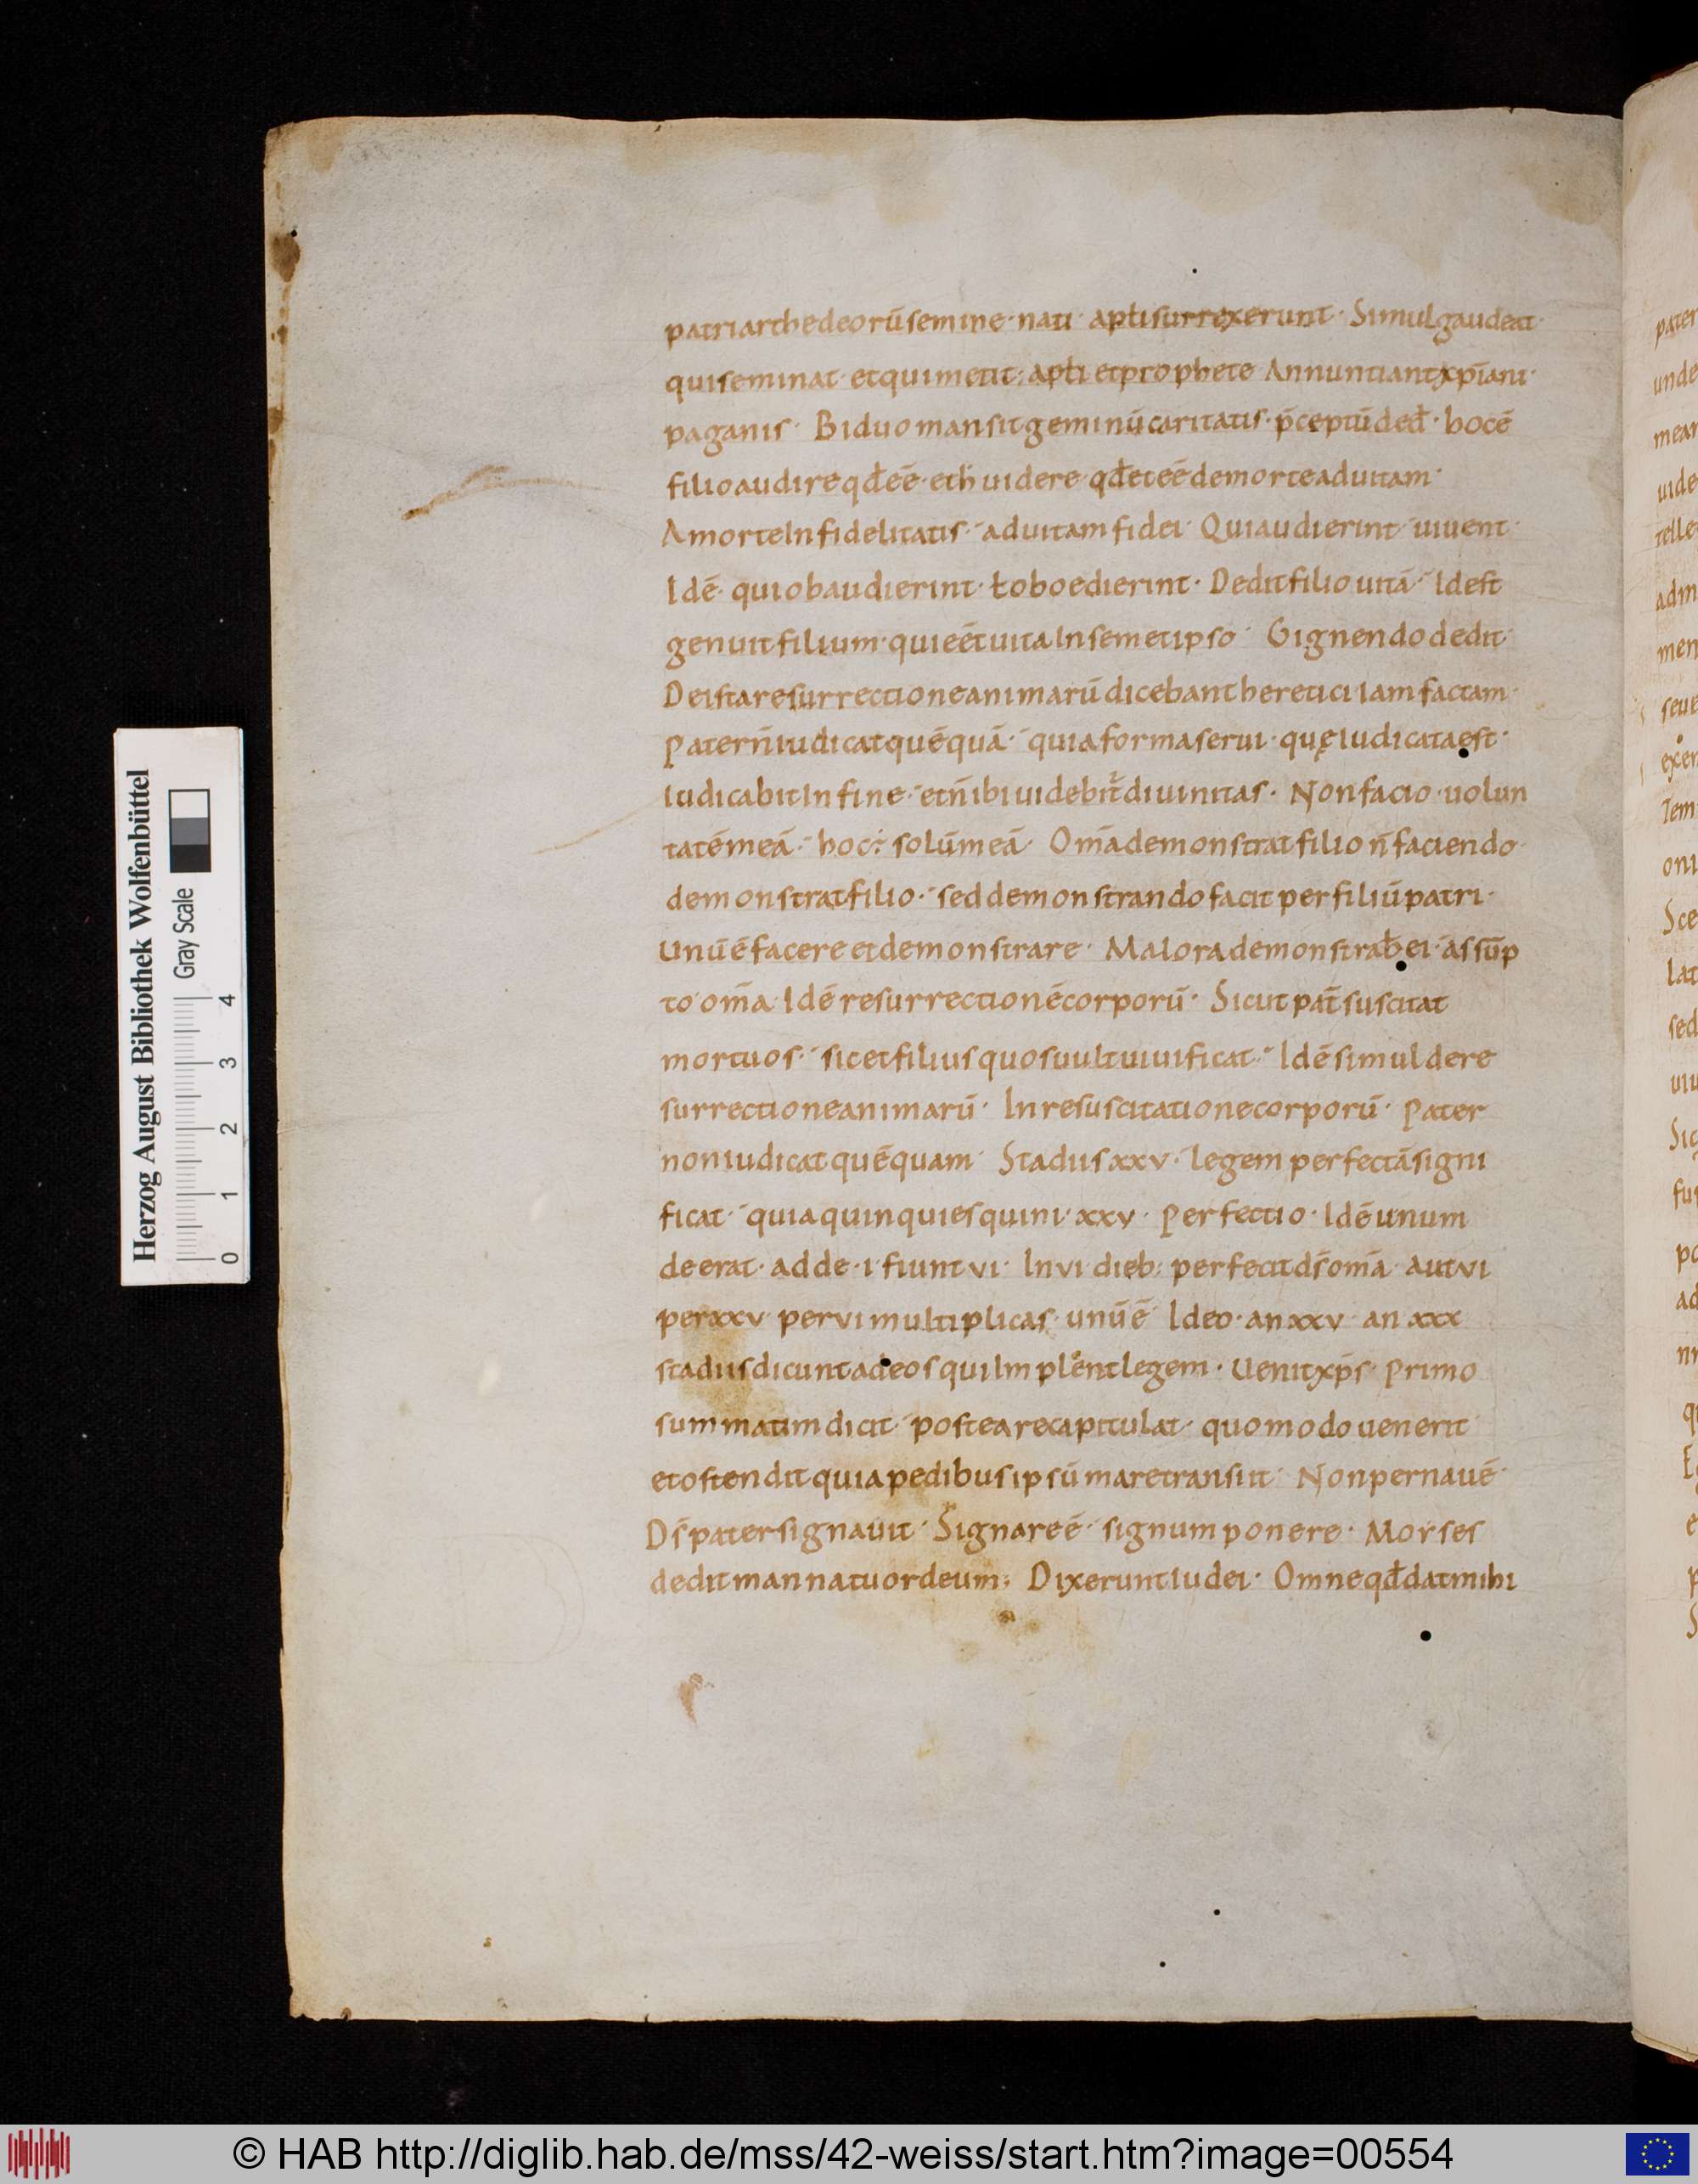 patriarche deorū semine · nati · aptī surrexerunt · Simul gaudeat ·
qui seminat · et qui metit · aptī et prophete Annuntiant xp̄iani ·
paganis · Biduo mansit geminū caritatis · p̄ceptū ded̄ · hoc ē
filio audire qđ eē · et h̄ videre · qđ et eē de morte ad uitam ·
A morte Infidelitatis · ad uitam fidei · Qui audierint · uiuent ·
Idē · qui obaudierint · ł oboedierint · Dedit filio uitā · Idest
genuit filium · qui eēt uita In semetipso · Gignendo dedit ·
De ista resurrectione animarū dicebant heretici Iam factam ·
Pater n̄ iudicat quēquā · quia forma serui · quę Iudicata est ·
iudicabit In fine · et n̄ ibi uidebit̄ diuinitas · Non facio · uolun
tatē meā · hoc ÷ solū meā · Om̄a demonstrat filio n̄ faciendo ·
demonstrat filio · sed demonstrando facit per filiū patri ·
unū ē facere et demonstrare · Maiora demonstrab̄ ei · assūp
to om̄a · Idē resurrectionē corporū · Sicut pat̄ suscitat
mortuos · sic et filius quos uult uiuificat · Idē simul de re
surrectione animarū · In resuscitatione corporū · Pater
non iudicat quēquam · Stadiis xxv · legem perfectā signi
ficat · quia quinquies quini · xxv · Perfectio · Idē unum
deerat · adde · i · fiunt vi · In vi dieb; perfecit ds̄ om̄a · aut vi
per xxv · per vi multiplicas · unū ē · Ideo · an xxv · an xxx
stadiis dicunt ad eos qui Implēnt legem · Uenit xp̄s · Primo
summatim dicit · postea recapitulat · quomodo uenerit ·
et ostendit quia pedibus ipsū mare transiit · Non per nauē ·
Ds̄ pater signauit · Signare ē · signum ponere · Moyses
dedit manna tu ordeum; Dixerunt Iudei · Omne qđ dat mihi
Herzog August Bibliothek Wolfenbüttel
Gray Scale
0 1 2 3 4
© HAB http://diglib.hab.de/mss/42-weiss/start.htm?image=00554